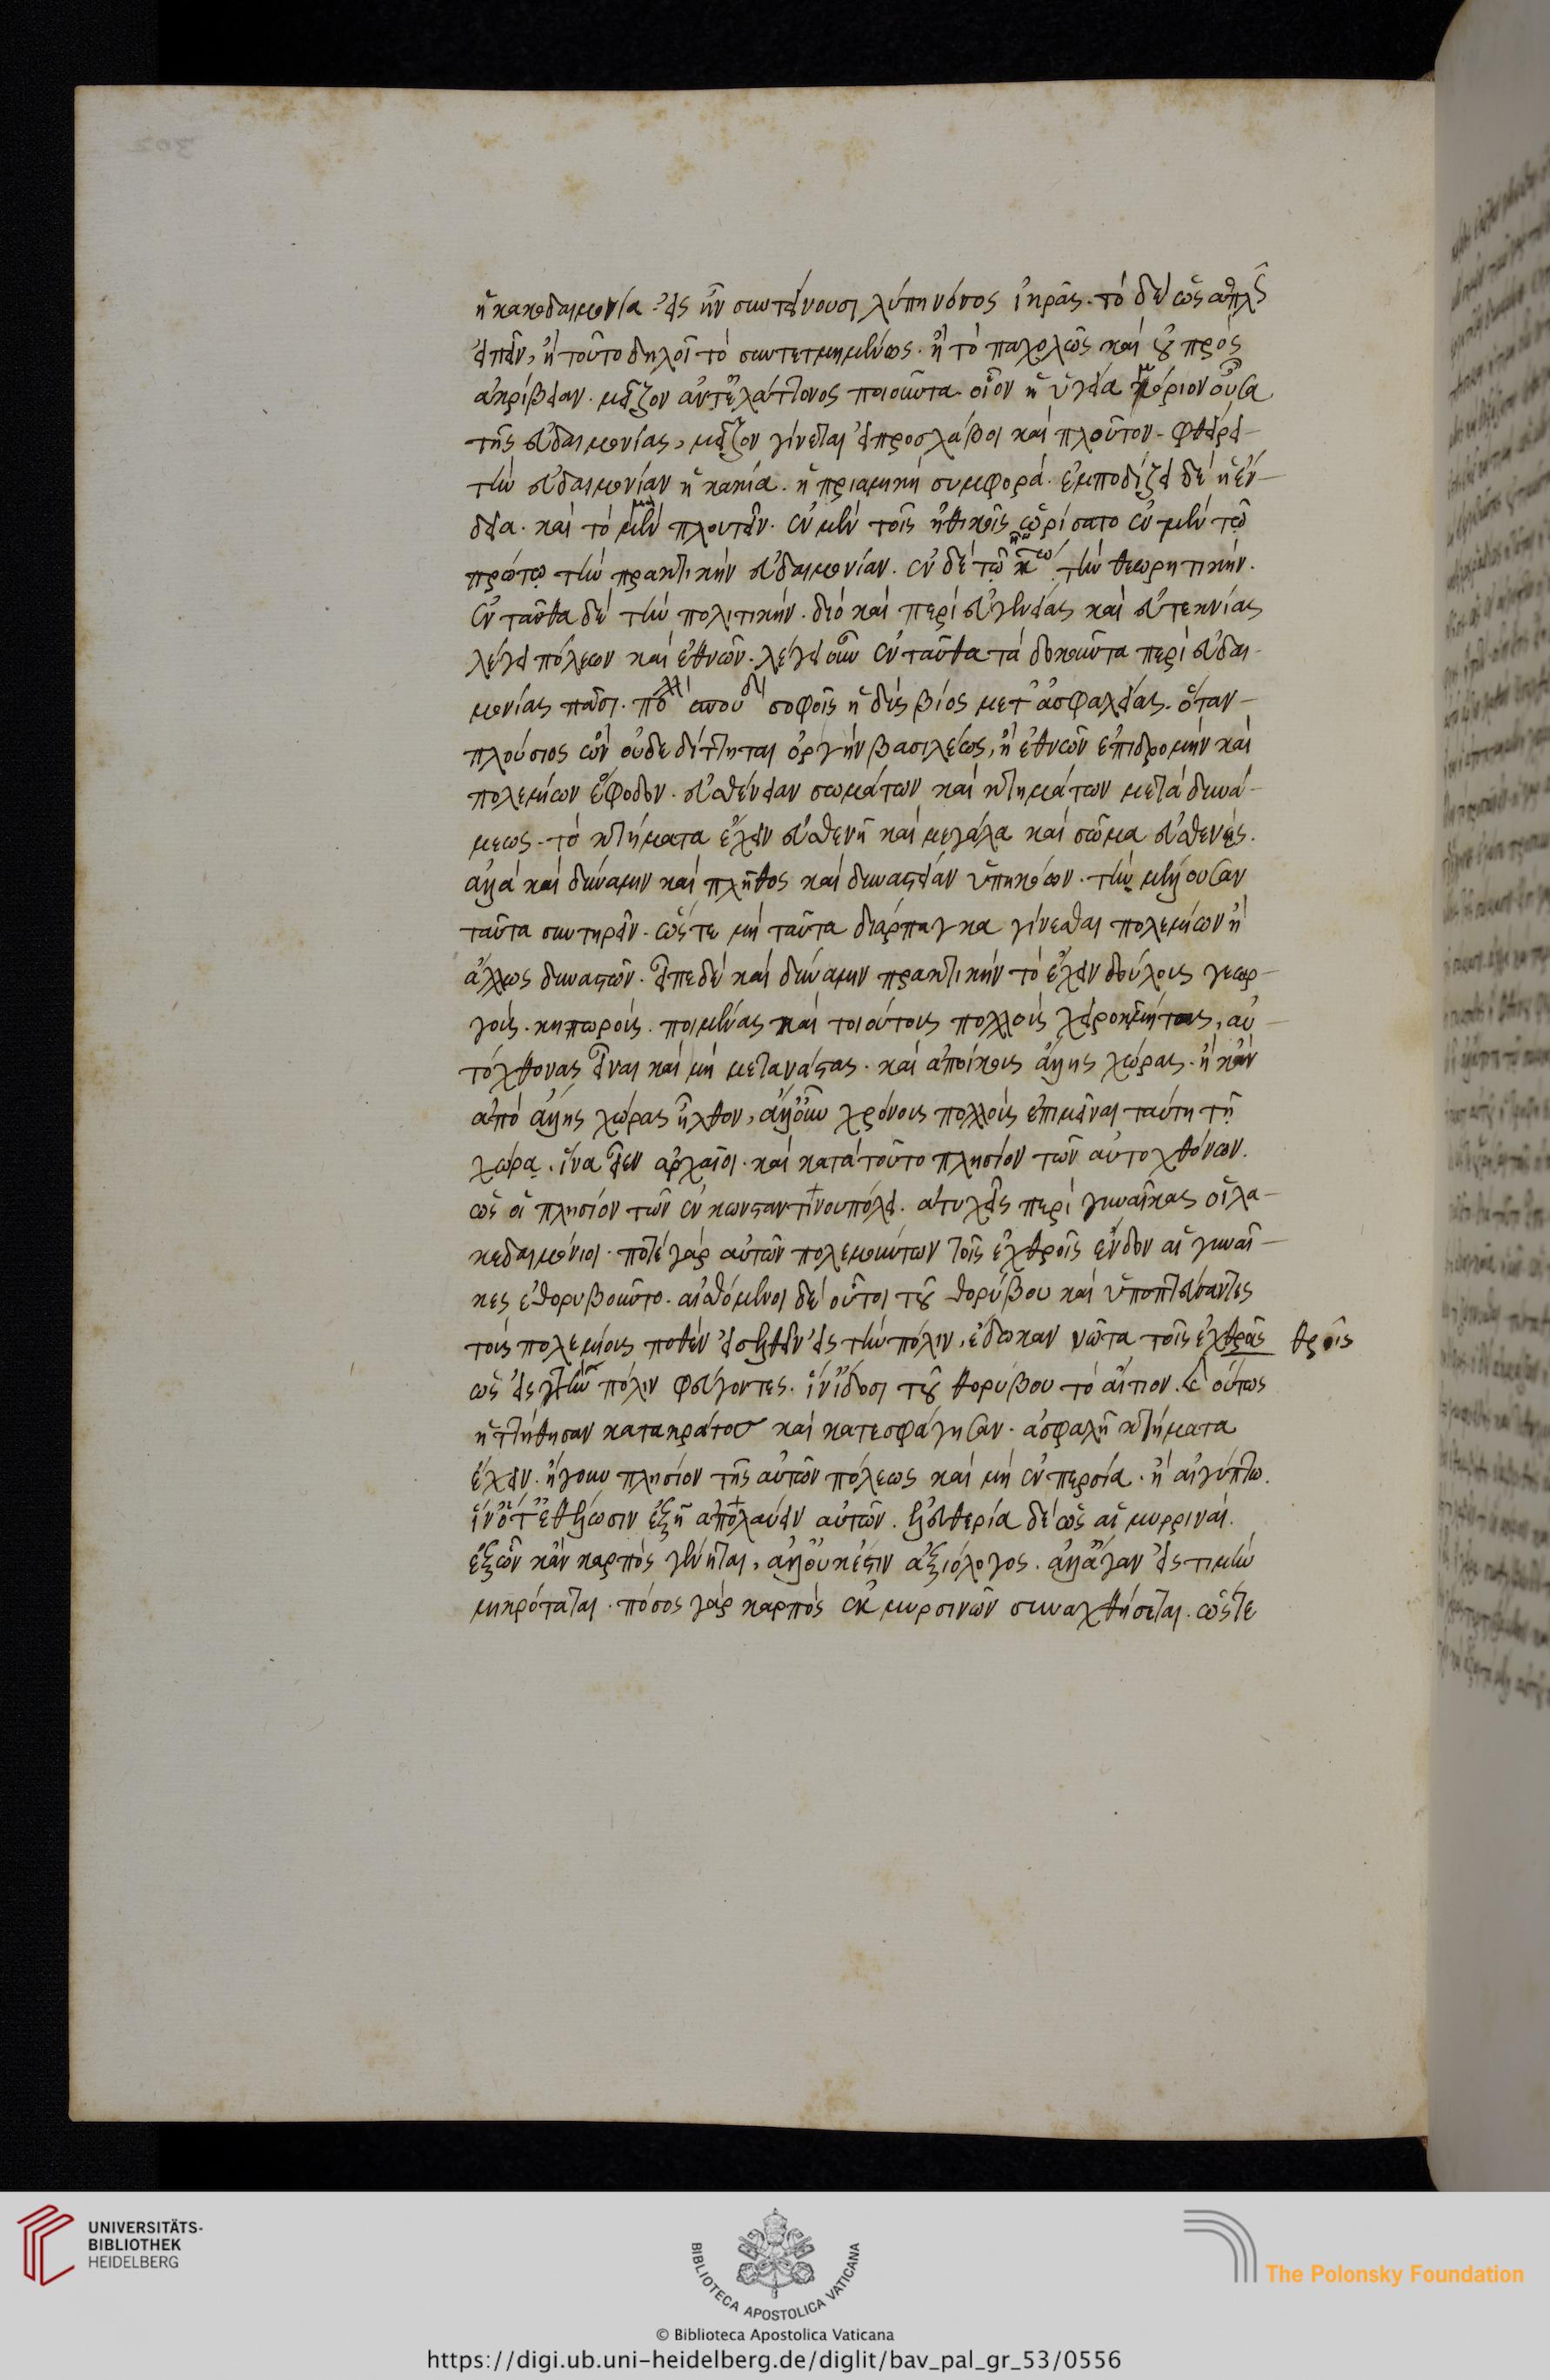 ἡ κακοδαιμονία. εἰς ἣν συντείνουσι λύπη νόσος ἢ γῆρας. τὸ δὲ ὡς ἁπλῶς
εἰπεῖν, ἢ τοῦτο δηλοῖ τὸ συντετμημένως. ἢ τὸ παχυλῶς καὶ οὐ πρὸς
ἀκρίβειαν. μεῖζον ἀντ' ἐλάττονος ποιοῦντα. οἷον ἡ ὑγεία μόριον οὖσα
τῆς εὐδαιμονίας, μεῖζον γίνεται εἰ προσλάβοι καὶ πλοῦτον. φθείρει
τὴν εὐδαιμονίαν ἡ κακία. ἡ πριαμικὴ συμφορά. ἐμποδίζει δὲ ἡ ἔν-
δεια. καὶ τὸ μὴ πλουτεῖν. ἐν μὲν τοῖς ἠθικοῖς ὡρίσατο ἐν μὲν τῷ
πρώτῳ τὴν πρακτικὴν εὐδαιμονίαν. ἐν δὲ τῷ κῶ τὴν θεωρητικήν.
ἐνταῦθα δὲ τὴν πολιτικήν. διὸ καὶ περὶ εὐγενείας καὶ εὐτεκνίας
λέγει πόλεων καὶ ἐθνῶν. λέγει οὖν ἐνταῦθα τὰ δοκοῦντα περὶ εὐδαι-
μονίας πᾶσι. πολλ σπουδ σοφοῖς ἡδὺς βίος μετ' ἀσφαλείας. ὅταν
πλούσιος ὢν οὐδὲ δέττηται ὀργὴν βασιλέως, ἢ ἐθνῶν ἐπιδρομὴν καὶ
πολεμίων ἔφοδον. εὐθένειαν σωμάτων καὶ κτημάτων μετὰ δυνά-
μεως. τὸ κτήματα ἔχειν εὐθενῆ καὶ μεγάλα καὶ σῶμα εὐθενές.
ἀλλὰ καὶ δύναμιν καὶ πλῆθος καὶ δυναστείαν ὑπηκόων. τὴν μέλλουσαν
ταῦτα συντηρεῖν. ὥστε μὴ ταῦτα διάρπαγμα γίνεσθαι πολεμίων ἢ
ἄλλως δυναστῶν. εἶπε δὲ καὶ δύναμιν πρακτικὴν τὸ ἔχειν δούλους γεωρ-
γοὺς. κηπωροὺς. ποιμένας καὶ τοιούτους πολλοὺς χειροκμήτους, αὐ-
τόχθονας εἶναι καὶ μὴ μετανάστας. καὶ ἀποίκους ἄλλης χώρας. ἢ κἂν
ἀπὸ ἄλλης χώρας ἦλθον, ἀλλ' οὖν χρόνους πολλοὺς ἐπιμεῖναι ταύτῃ τῇ
χώρᾳ. ἵνα εἶεν ἀρχαῖοι. καὶ κατὰ τοῦτο πλησίον τῶν αὐτοχθόνων.
ὡς οἱ πλησίον τῶν ἐν κωνσταντινουπόλει. ἀτυχεῖς περὶ γυναῖκας οἱ λα-
κεδαιμόνιοι. ποτὲ γὰρ αὐτῶν πολεμούντων τοῖς ἐχθροῖς ἔνδον αἱ γυναῖ-
κες ἐθορυβοῦντο. αἰσθόμενοι δὲ οὗτοι τοῦ θορύβου καὶ ὑποπτεύσαντες
τοὺς πολεμίους ποθὲν εἰσελθεῖν εἰς τὴν πόλιν, ἔδωκαν νῶτα τοῖς ἐχθρᾶς θροῖς
ὡς εἰς τὴν πόλιν φεύγοντες. ἵν' ἴδωσι τοῦ θορύβου τὸ αἴτιον. καὶ οὕτως
ἡττήθησαν κατακράτος καὶ κατεσφάγησαν. ἀσφαλῆ κτήματα
ἔχειν. ἤγουν πλησίον τῆς αὐτῶν πόλεως καὶ μὴ ἐν περσία. ἢ αἰγύπτω.
ἵν' ὅτ' ἐθέλωσιν ἐξῇ ἀπολαύειν αὐτῶν. ἐλευθερία δὲ ὡς αἱ μυρριναί.
ἐξ ὧν κἂν καρπὸς γένηται, ἀλλ' οὐκ ἔστιν ἀξιόλογος. ἀλλ' ἄγαν εἰς τιμὴν
μικρότατοι. πόσος γὰρ καρπὸς ἐκ μυρσινῶν συναχθήσεται. ὥστε
UNIVERSITÄTS-
BIBLIOTHEK
HEIDELBERG
BIBLIOTECA APOSTOLICA VATICANA
The Polonsky Foundation
© Biblioteca Apostolica Vaticana
https://digi.ub.uni-heidelberg.de/diglit/bav_pal_gr_53/0556